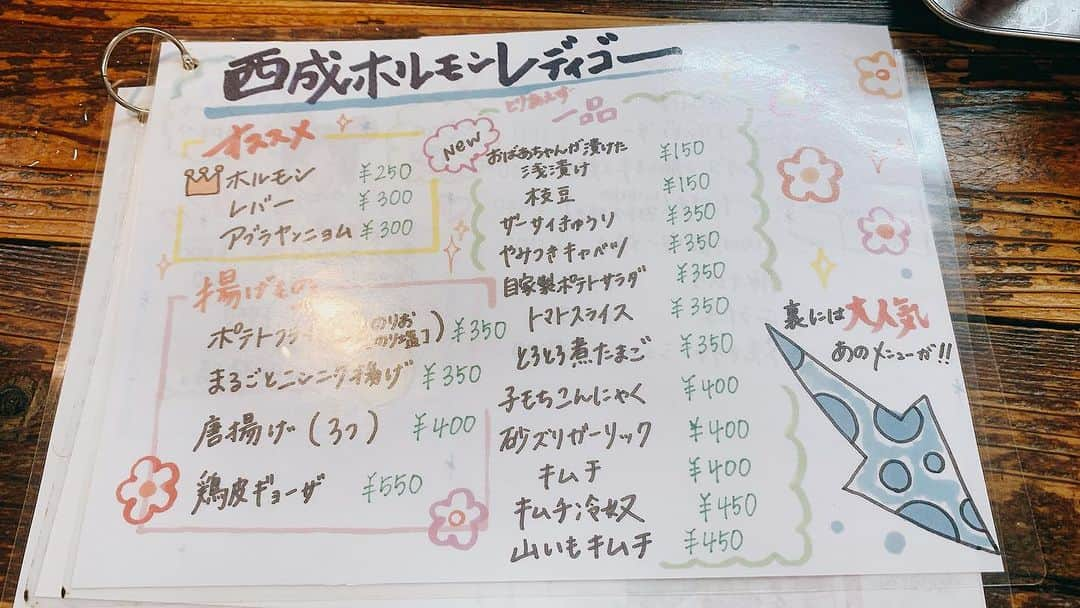 西成ホルモンレディゴー
オススメ
ホルモン ¥250
レバー ¥300
アブラヤンニョム ¥300
揚げもの
ポテトフライ のりお のり塩 ) ¥350
まるごとニンニク揚げ ¥350
唐揚げ(3つ) ¥400
鶏皮ギョーザ ¥550
とりあえず
一品
New
おばあちゃんが漬けた
浅漬け ¥150
枝豆 ¥150
ザーサイきゅうり ¥350
やみつきキャベツ ¥350
自家製ポテトサラダ ¥350
トマトスライス ¥350
とろとろ煮たまご ¥350
子もちこんにゃく ¥400
砂ズリガーリック ¥400
キムチ ¥400
キムチ冷奴 ¥450
山いもキムチ ¥450
裏には大人気
あのメニューが!!